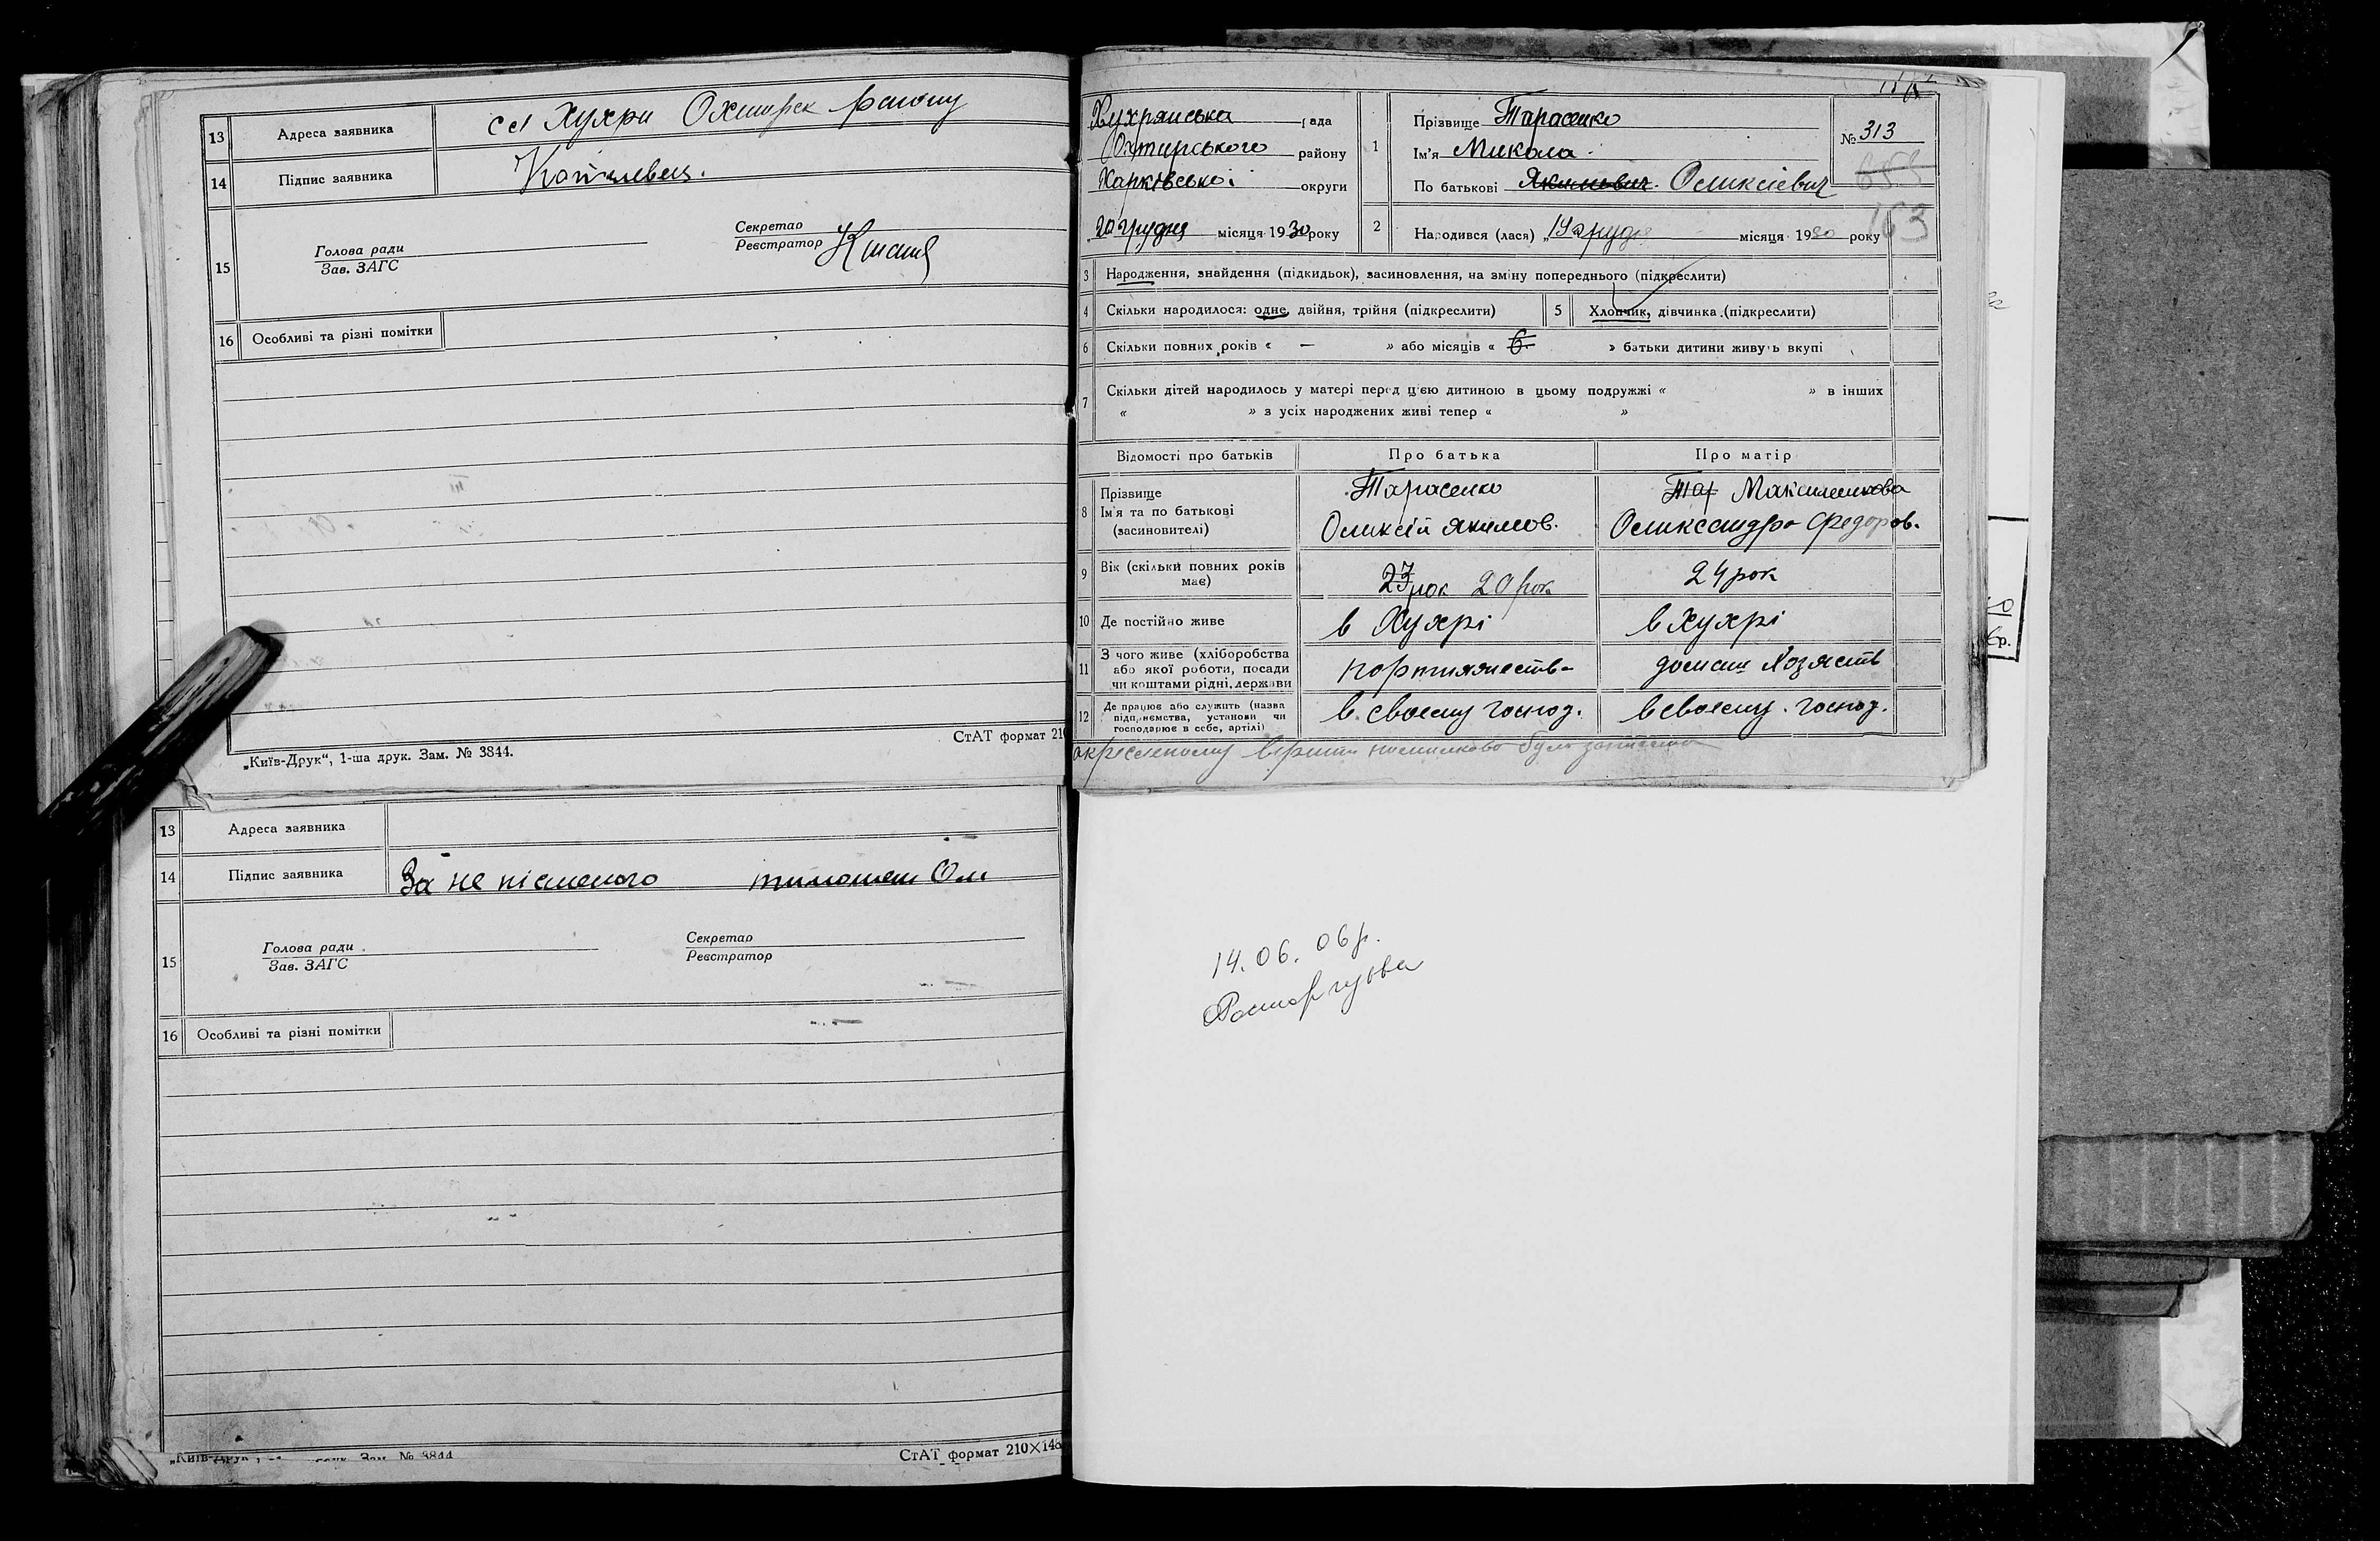 13 Адреса заявника сел Хухри Охтирск району
14 Підпис заявника
15 Голова ради
Зав. ЗАГС
Секретар
Реєстратор
16 Особливі та різні помітки
СтАТ формат 210
„Київ-Друк“, 1-ша друк. Зам. № 3844.
13 Адреса заявника
14 Підпис заявника За не пісьменого
15 Голова ради
Зав. ЗАГС
Секретар
Реєстратор
16 Особливі та різні помітки
„Київ-Друк“, Зам. № 3844
СтАТ формат 210×148
Хухрянська рада
Охтирського району
Харківської округи
„20 грудня місяця 1930 року
1 Прізвище Тарасенко
Ім'я Микола
По батькові Якимович Оликсієвич
№ 313
163
2 Народився (лася) „19 грудня місяця 1930 року
3 Народження, знайдення (підкидьок), засиновлення, на зміну попереднього (підкреслити)
4 Скільки народилося: одне, двійня, трійня (підкреслити) 5 Хлопчик, дівчинка (підкреслити)
6 Скільки повних років « — » або місяців « 6 » батьки дитини живуть вкупі
7 Скільки дітей народилось у матері перед цією дитиною в цьому подружжі « » в інших
« » з усіх народжених живі тепер « »
Відомості про батьків Про батька Про матір
8 Прізвище
Ім'я та по батькові
(засновителі)
Тарасенко
Оликсій Якимов.
Тар Максименкова
Оликсандра Федоров.
9 Вік (скільки повних років має) 23 рок 20 рок 24 рок
10 Де постійно живе в Хухрі в Хухрі
11 З чого живе (хліборобства
або якої роботи, посади
чи коштами рідні, держави
домаш хозяств
12 Де працює або служить (назва
підприємства, установи чи
господарює в себе, артілі)
в своему господ. в своему господ.
помилково було записано
14.06.06р.